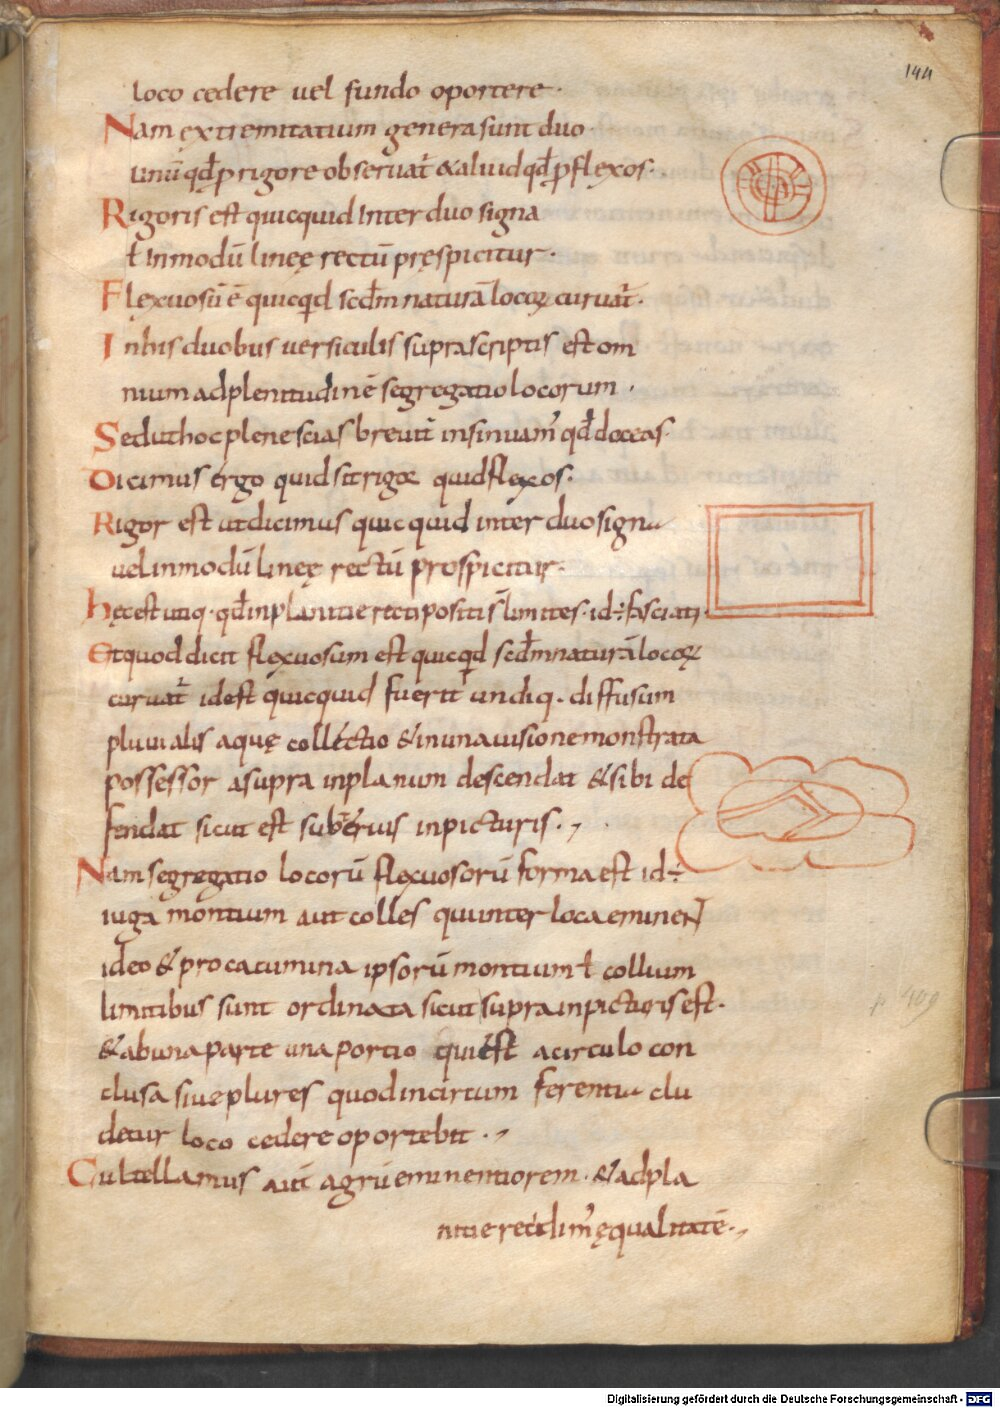 144
loco cedere uel fundo oportere·
Nam extremitatium genera sunt duo·
unū qđ ꝑ rigore obseruat̄ & aliud qđ ꝑ flexos·
Rigoris est quicquid Inter duo signa
ł Inmodū lineę rectū pręspicitur·
Flexuosū ē quicqd scdm naturā locoꝝ curuat̄·
In his duobus uersiculis suprascriptis est om
nium ad plenitudinē segregatio locorum·
Sed ut hoc plene scias breuit̄ insinuam' qđ doceas·
Dicimus ergo quid sit rigor quid flexos·
Rigor est ut dicimus quicquid inter duo signa
uel in modū lineę rectū prospicitur·
hęc est utiq· qđ in planitie recti positi s̄ limites· id÷ fasciati·
Et quod dicit flexuosum est quicqd scdm naturā locoꝝ
curuat̄ id est quicquid fuerit undiq· diffusum
pluuialis aquę collectio & in una uisione monstrata
possessor a supra in planum descendat & sibi de
fendat sicut est in picturis·
Nam segregatio locorū flexuosorū forma est id÷
iuga montium aut colles qui inter loca eminent
ideo & pro cacumina ipsorū montium ł collium
limitibus sunt ordinata sicut supra in picturis est·
& ab una parte una portio qui est a circulo con
clusa siue plures quod in circum ferentia clu
detur loco cedere oportebit·
Cultellamus aut̄ agrū eminentiorem· & ad pla
nitie redigim' ęqualitatē·
409
Digitalisierung gefördert durch die Deutsche Forschungsgemeinschaft - DFG